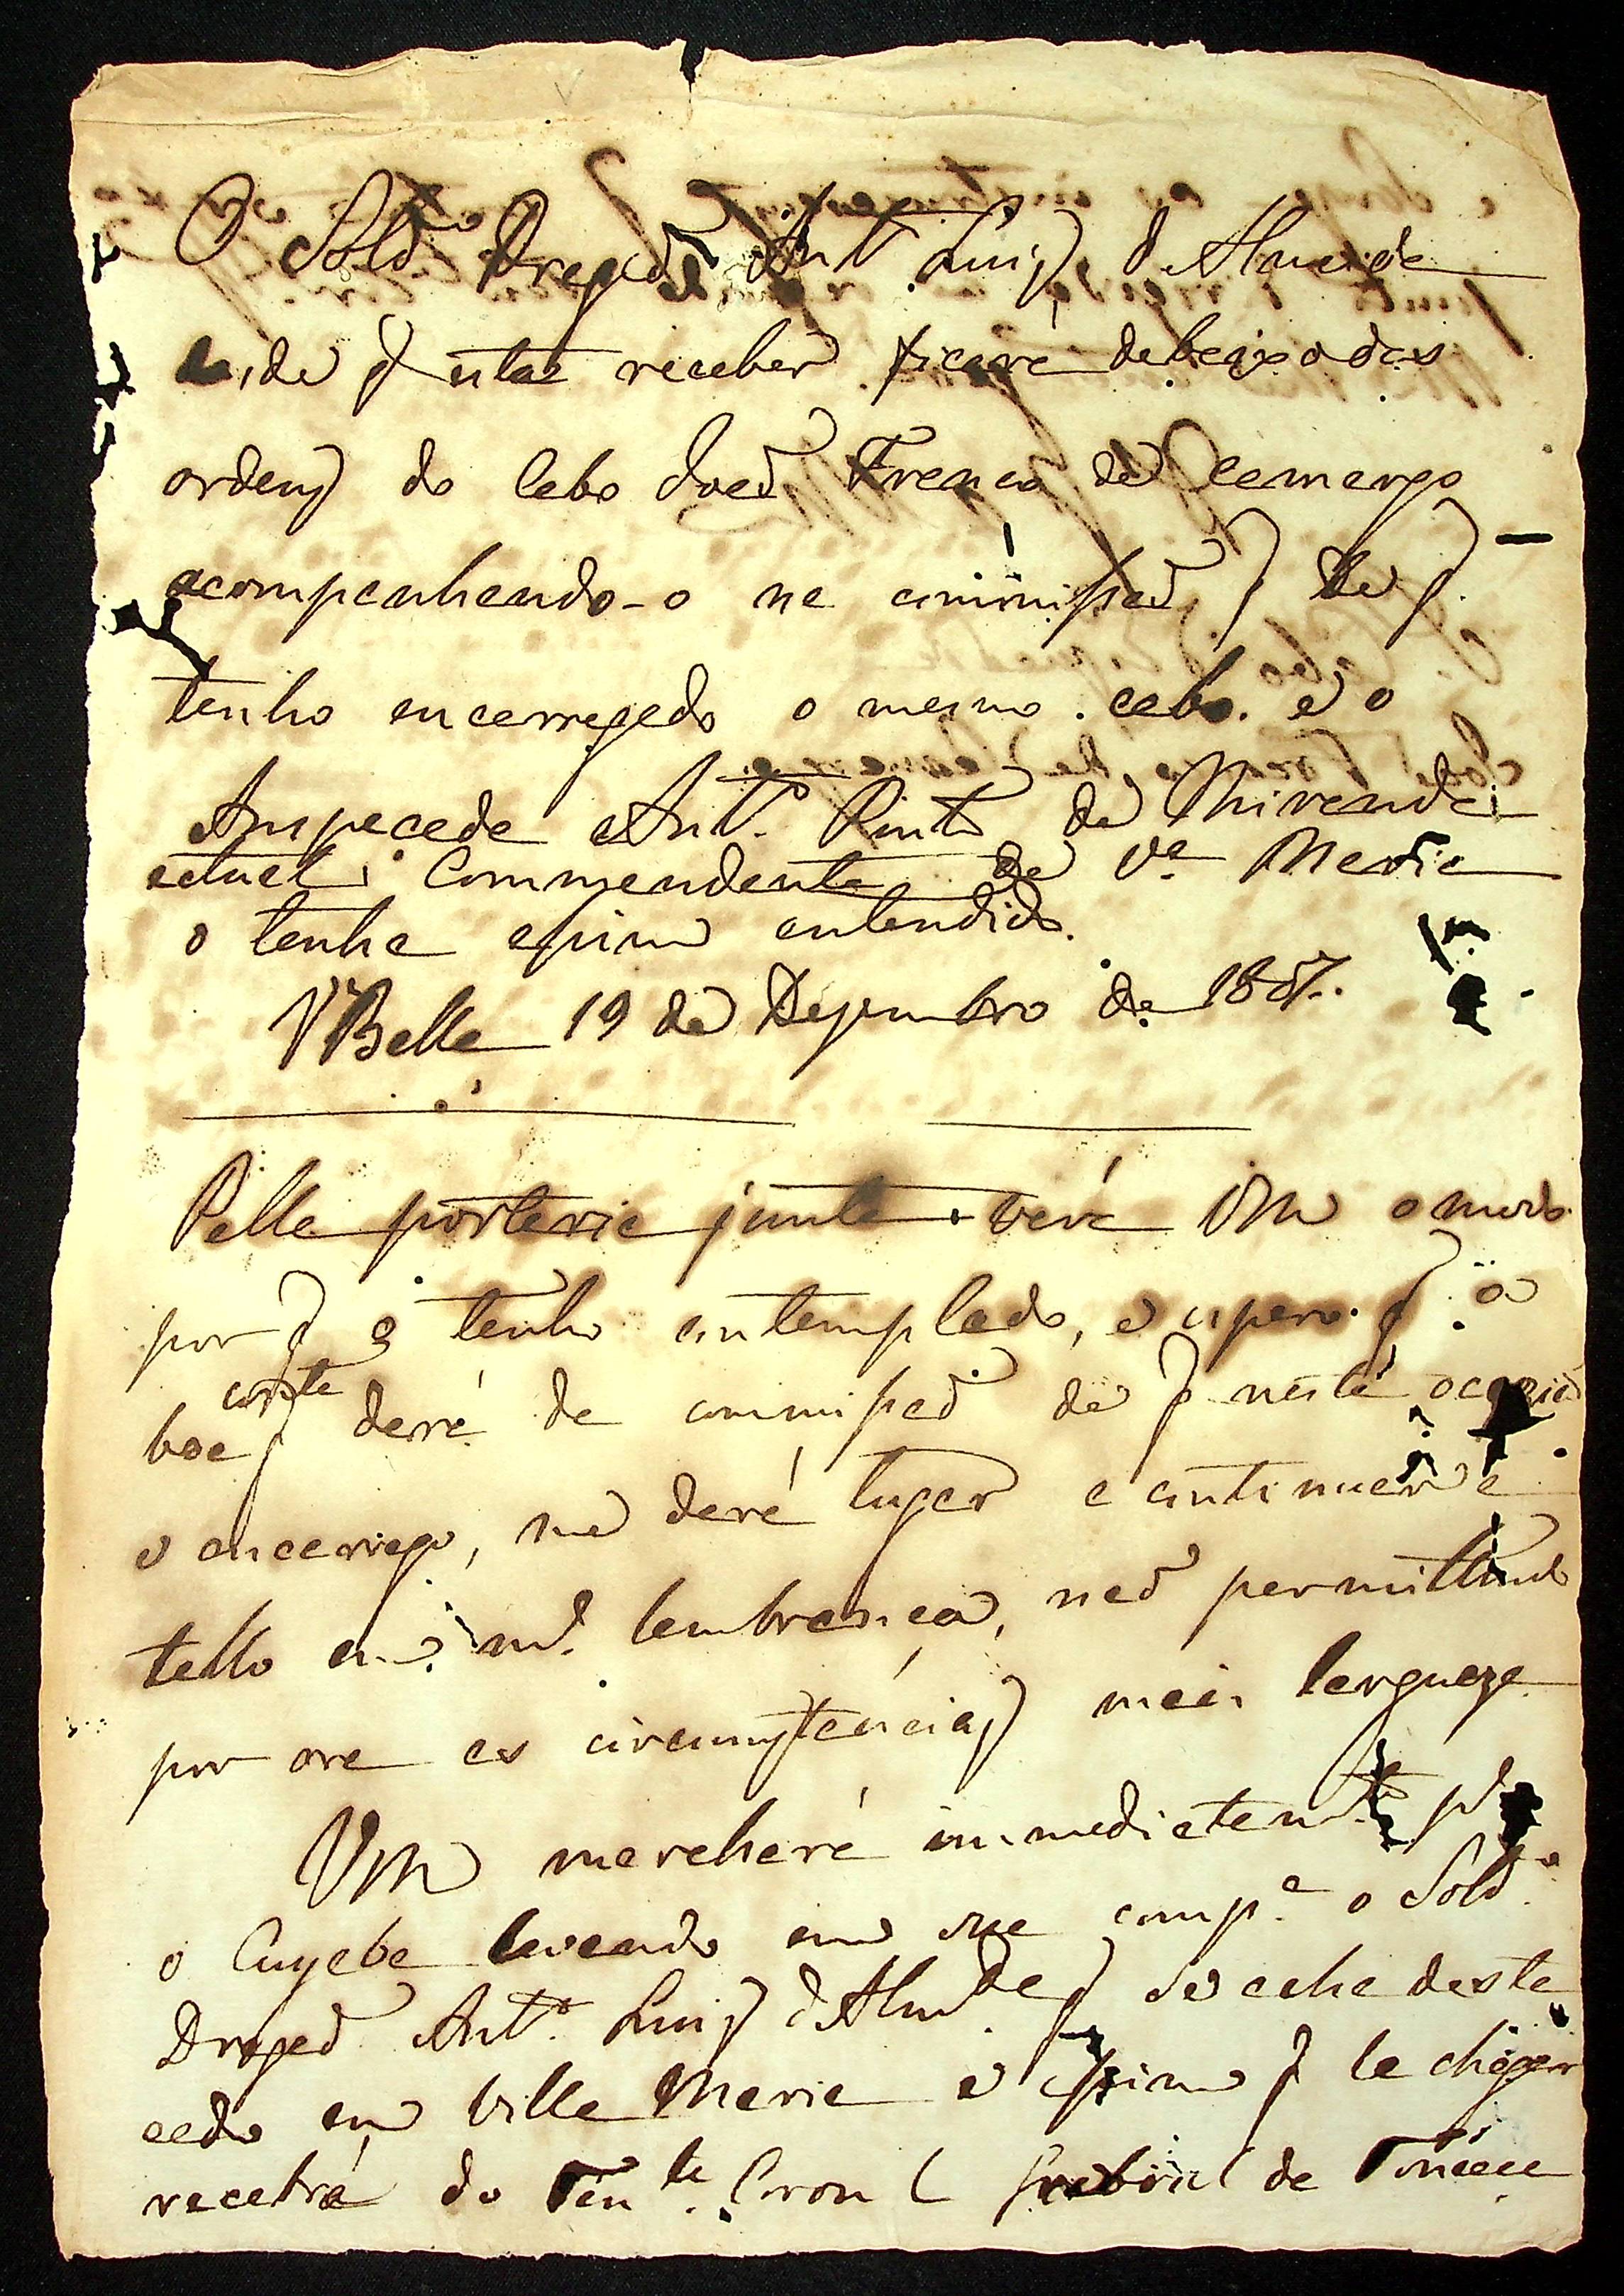 O Sold.o Dragão Ant.o Luiz d'Almeida
desde q esta receber ficará debaixo das
ordens do Cabo João França de Camargo
acompanhando-o na commissão de q
tenho encarregado o mesmo cabo. e o
Anspeçada Ant.o Pinto de Miranda
actual Commandante de V.a Maria
o tenha assim entendido.
V.a Bella 19 de Dezembro de
Pella portaria junta verá Vm o modo
por q o tenho contemplado, e espero q a
boa conta q dará da commissão de q nesta occazião
o encarrego, me dará lugar a continuar a
tello em m.a lembrança, não permittindo
por ora as circunstancias mais largueza
Vm marchará immediatam.te p.a
o Cuyaba levando em sua comp.a o Sold.o
Dragão Ant.o Luiz d'Alm.da q se acha desta
cado em Villa Maria e assim q la chegar
receberá do Ten.te Coron.l Gabriel da Fonceca